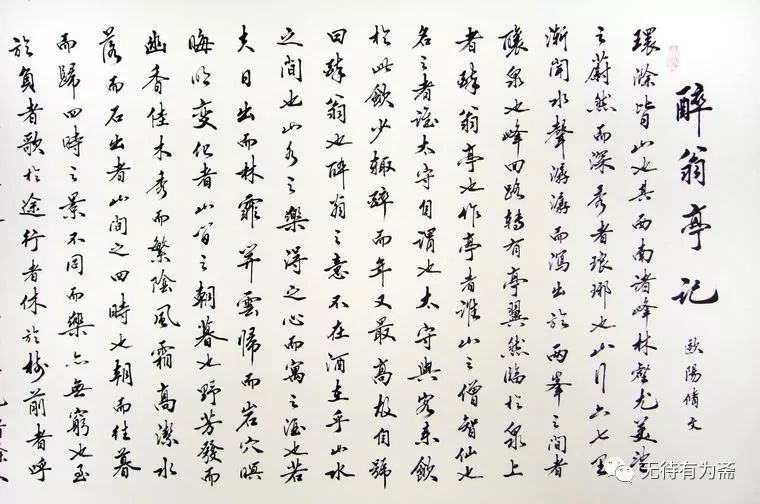 醉翁亭记
歐陽脩文
環滁皆山也其西南诸峰林壑尤美望
之蔚然而深秀者琅琊也山行六七里
渐聞水聲潺潺而瀉出於两峯之間者
釀泉也峰回路轉有亭翼然臨於泉上
者醉翁亭也作亭者誰山之僧智仙也
名之者谁太守自謂也太守與客来飲
於此飲少輒醉而年又最高故自號
曰醉翁也醉翁之意不在酒在乎山水
之间也山水之樂得之心而寓之酒也若
夫日出而林霏開雲歸而岩穴暝
晦明变化者山间之朝暮也野芳發而
幽香佳木秀而繁陰風霜高潔水
落而石出者山间之四時也朝而往暮
而歸四時之景不同而樂亦無窮也至
於負者歌於途行者休於樹前者呼
无待有为斋